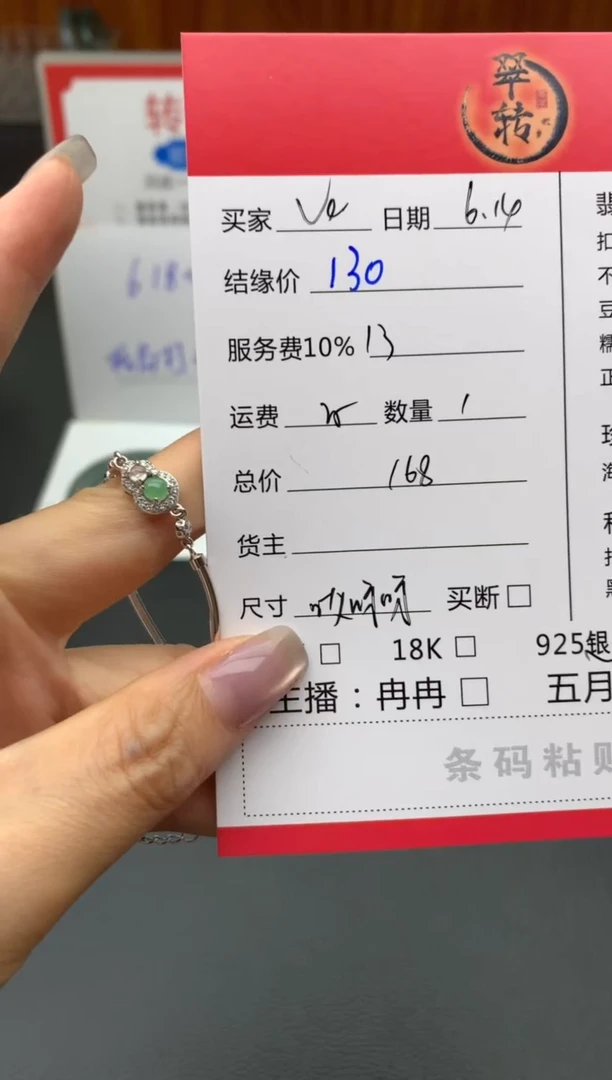 翠
转
转
618
买家 Ve 日期 6.14
结缘价 130
服务费10% 13
运费 25 数量 1
总价 168
货主
尺寸 买断 □
□ 18K □ 925银
主播：冉冉 □ 五月
条码粘贴
翡
扣
不
豆
糯
正